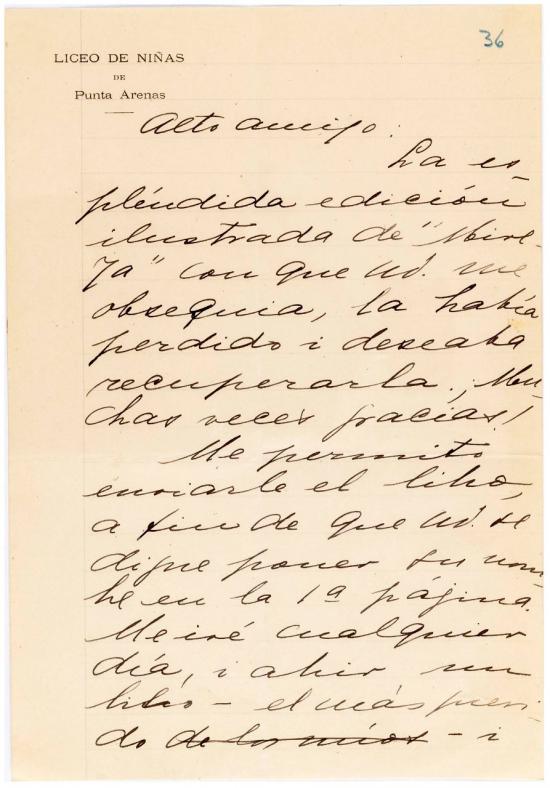 36
LICEO DE NIÑAS
DE
Punta Arenas
Alto amigo:
La es-
pléndida edición
ilustrada de "Mire-
ya" con que Ud. me
obsequia, la había
perdido i deseaba
recuperarla. ¡Mu-
chas veces gracias!
Me permito
enviarle el libro,
a fin de que Ud. se
digne poner su nom-
bre en la 1ª página.
Me iré cualquier
día, i abrir un
libro - el más queri-
do de los míos - i